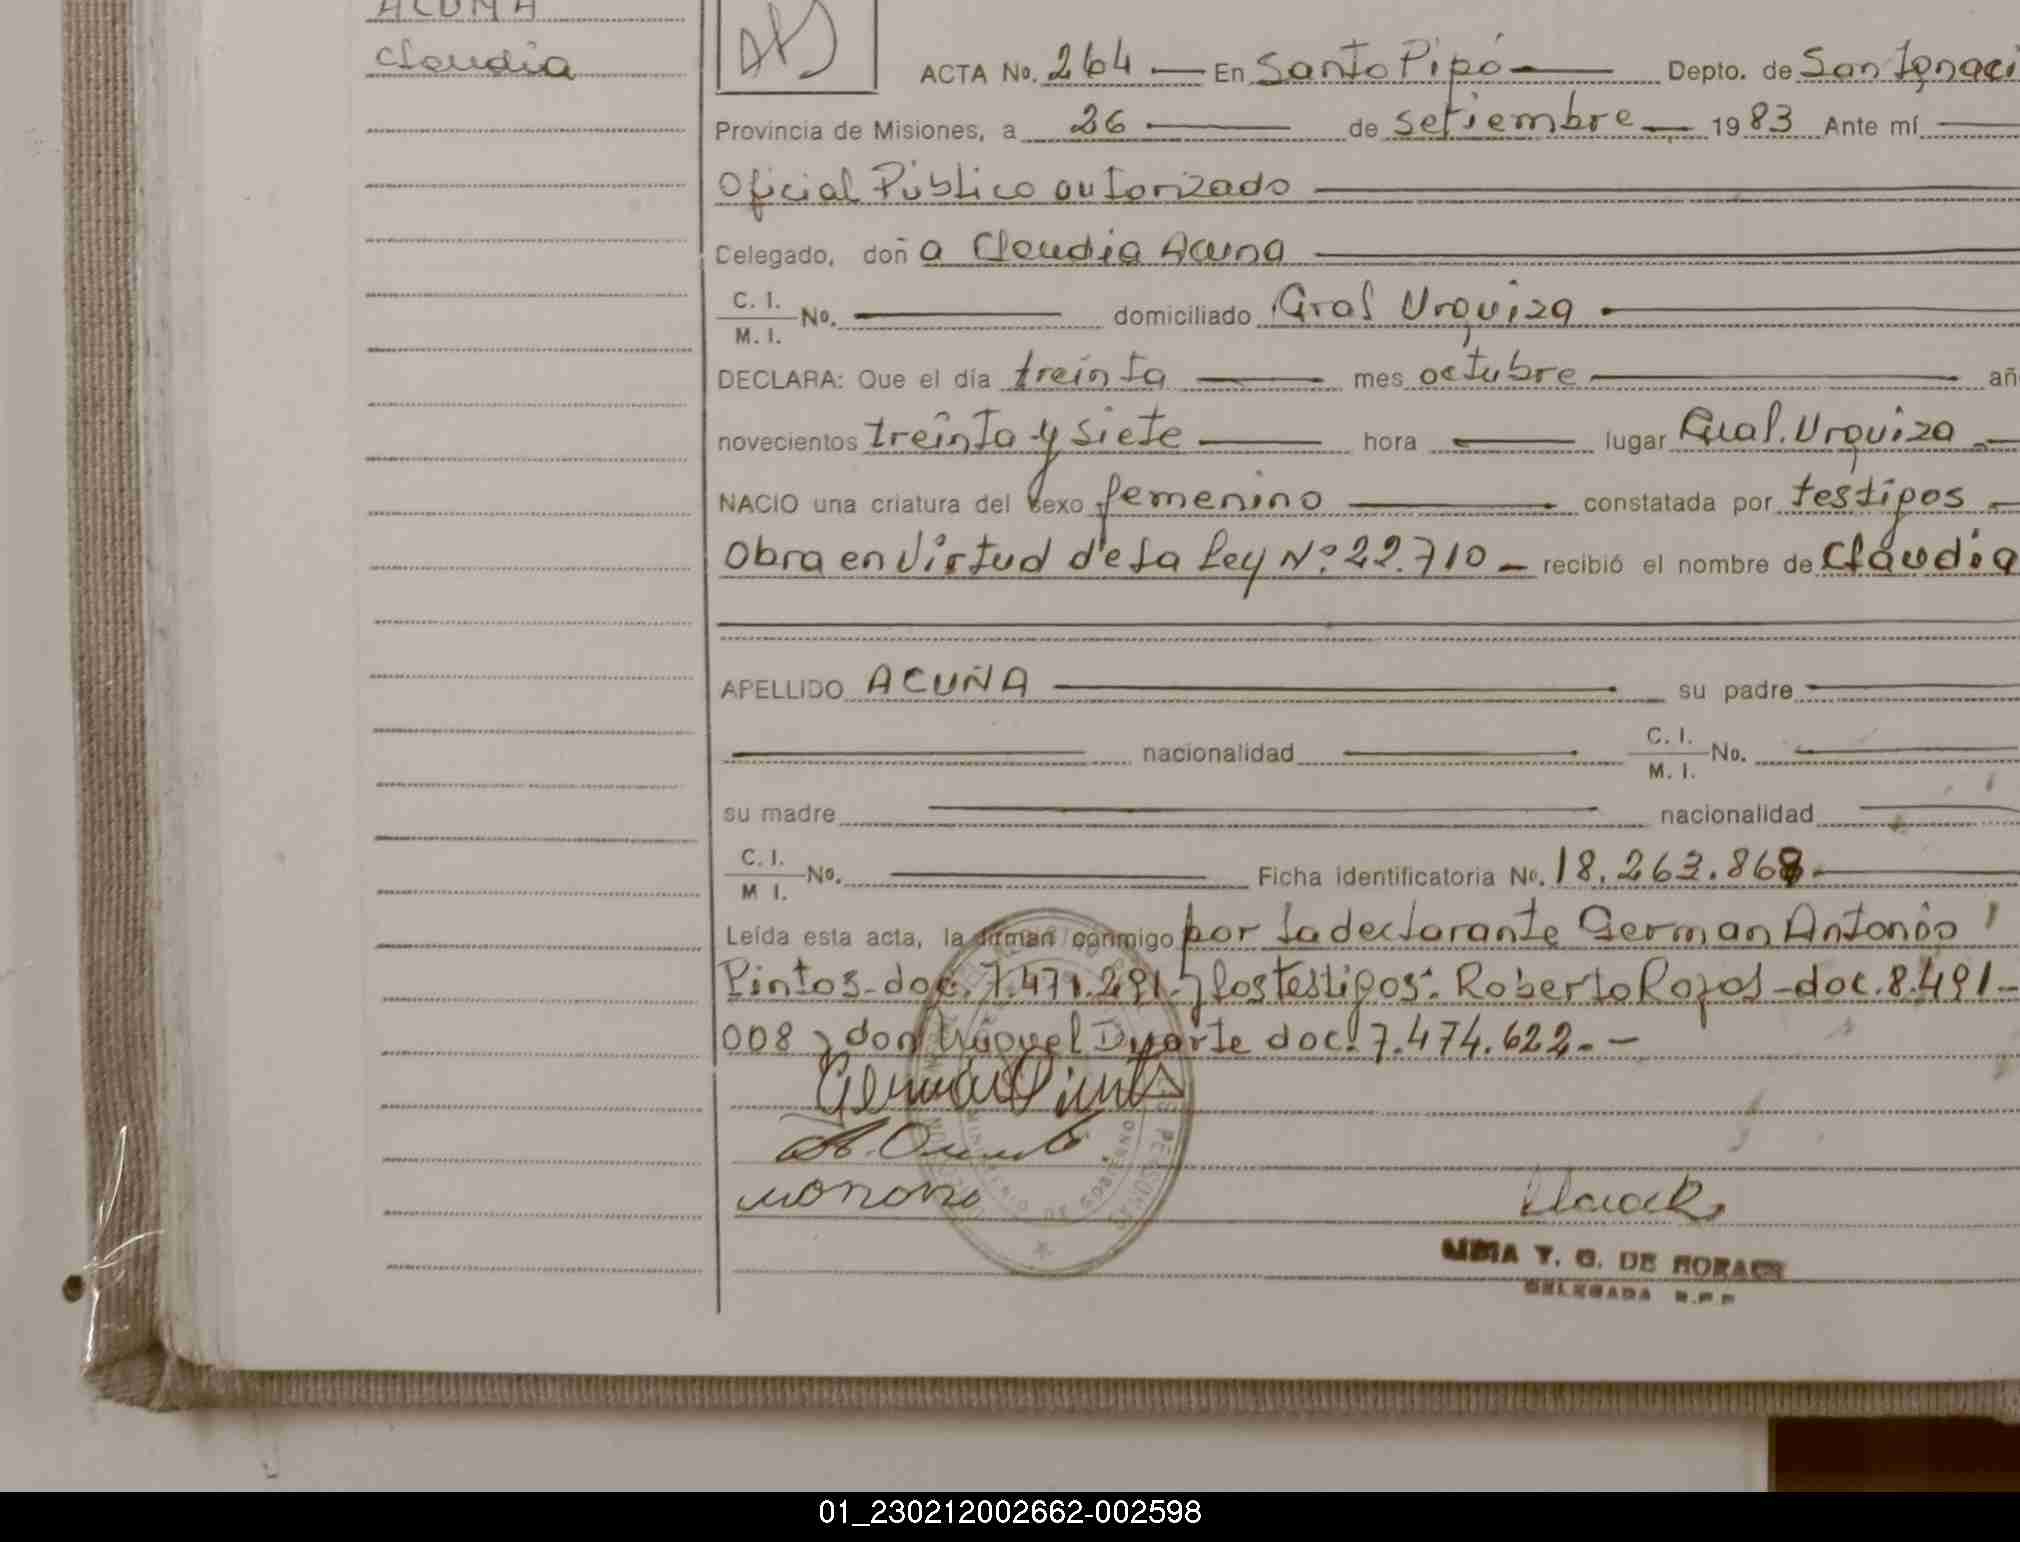 ACUÑA
Claudia
ACTA No. 264 — En Santo Pipó — Depto. de San Ignaci
Provincia de Misiones, a 26 — de setiembre — 1983 Ante mí —
Oficial Público autorizado —
Celegado, doña Claudia Acuna —
C. I.
M. I. No. — domiciliado Gral Urquiza —
DECLARA: Que el día treinta — mes octubre — añ
novecientos treinta y siete — hora — lugar Gral. Urquiza —
NACIO una criatura del sexo femenino — constatada por testigos —
Obra en virtud de la Ley Nº 22.710 — recibió el nombre de Claudia
APELLIDO ACUÑA — su padre —
— nacionalidad — C. I.
M. I. No. —
su madre — nacionalidad —
C. I.
M I. No. — Ficha identificatoria No. 18.263.868 —
Leída esta acta, la firman conmigo por la declarante German Antonio
Pintos-doc. 7.471.291 y los testigos: Roberto Rojas-doc. 8.491-
008 y don Miguel Duarte doc. 7.474.622.-
German Pintos
DE GOBIERNO
Y. G. DE MORAES
DELEGADA R.P.P
01_230212002662-002598